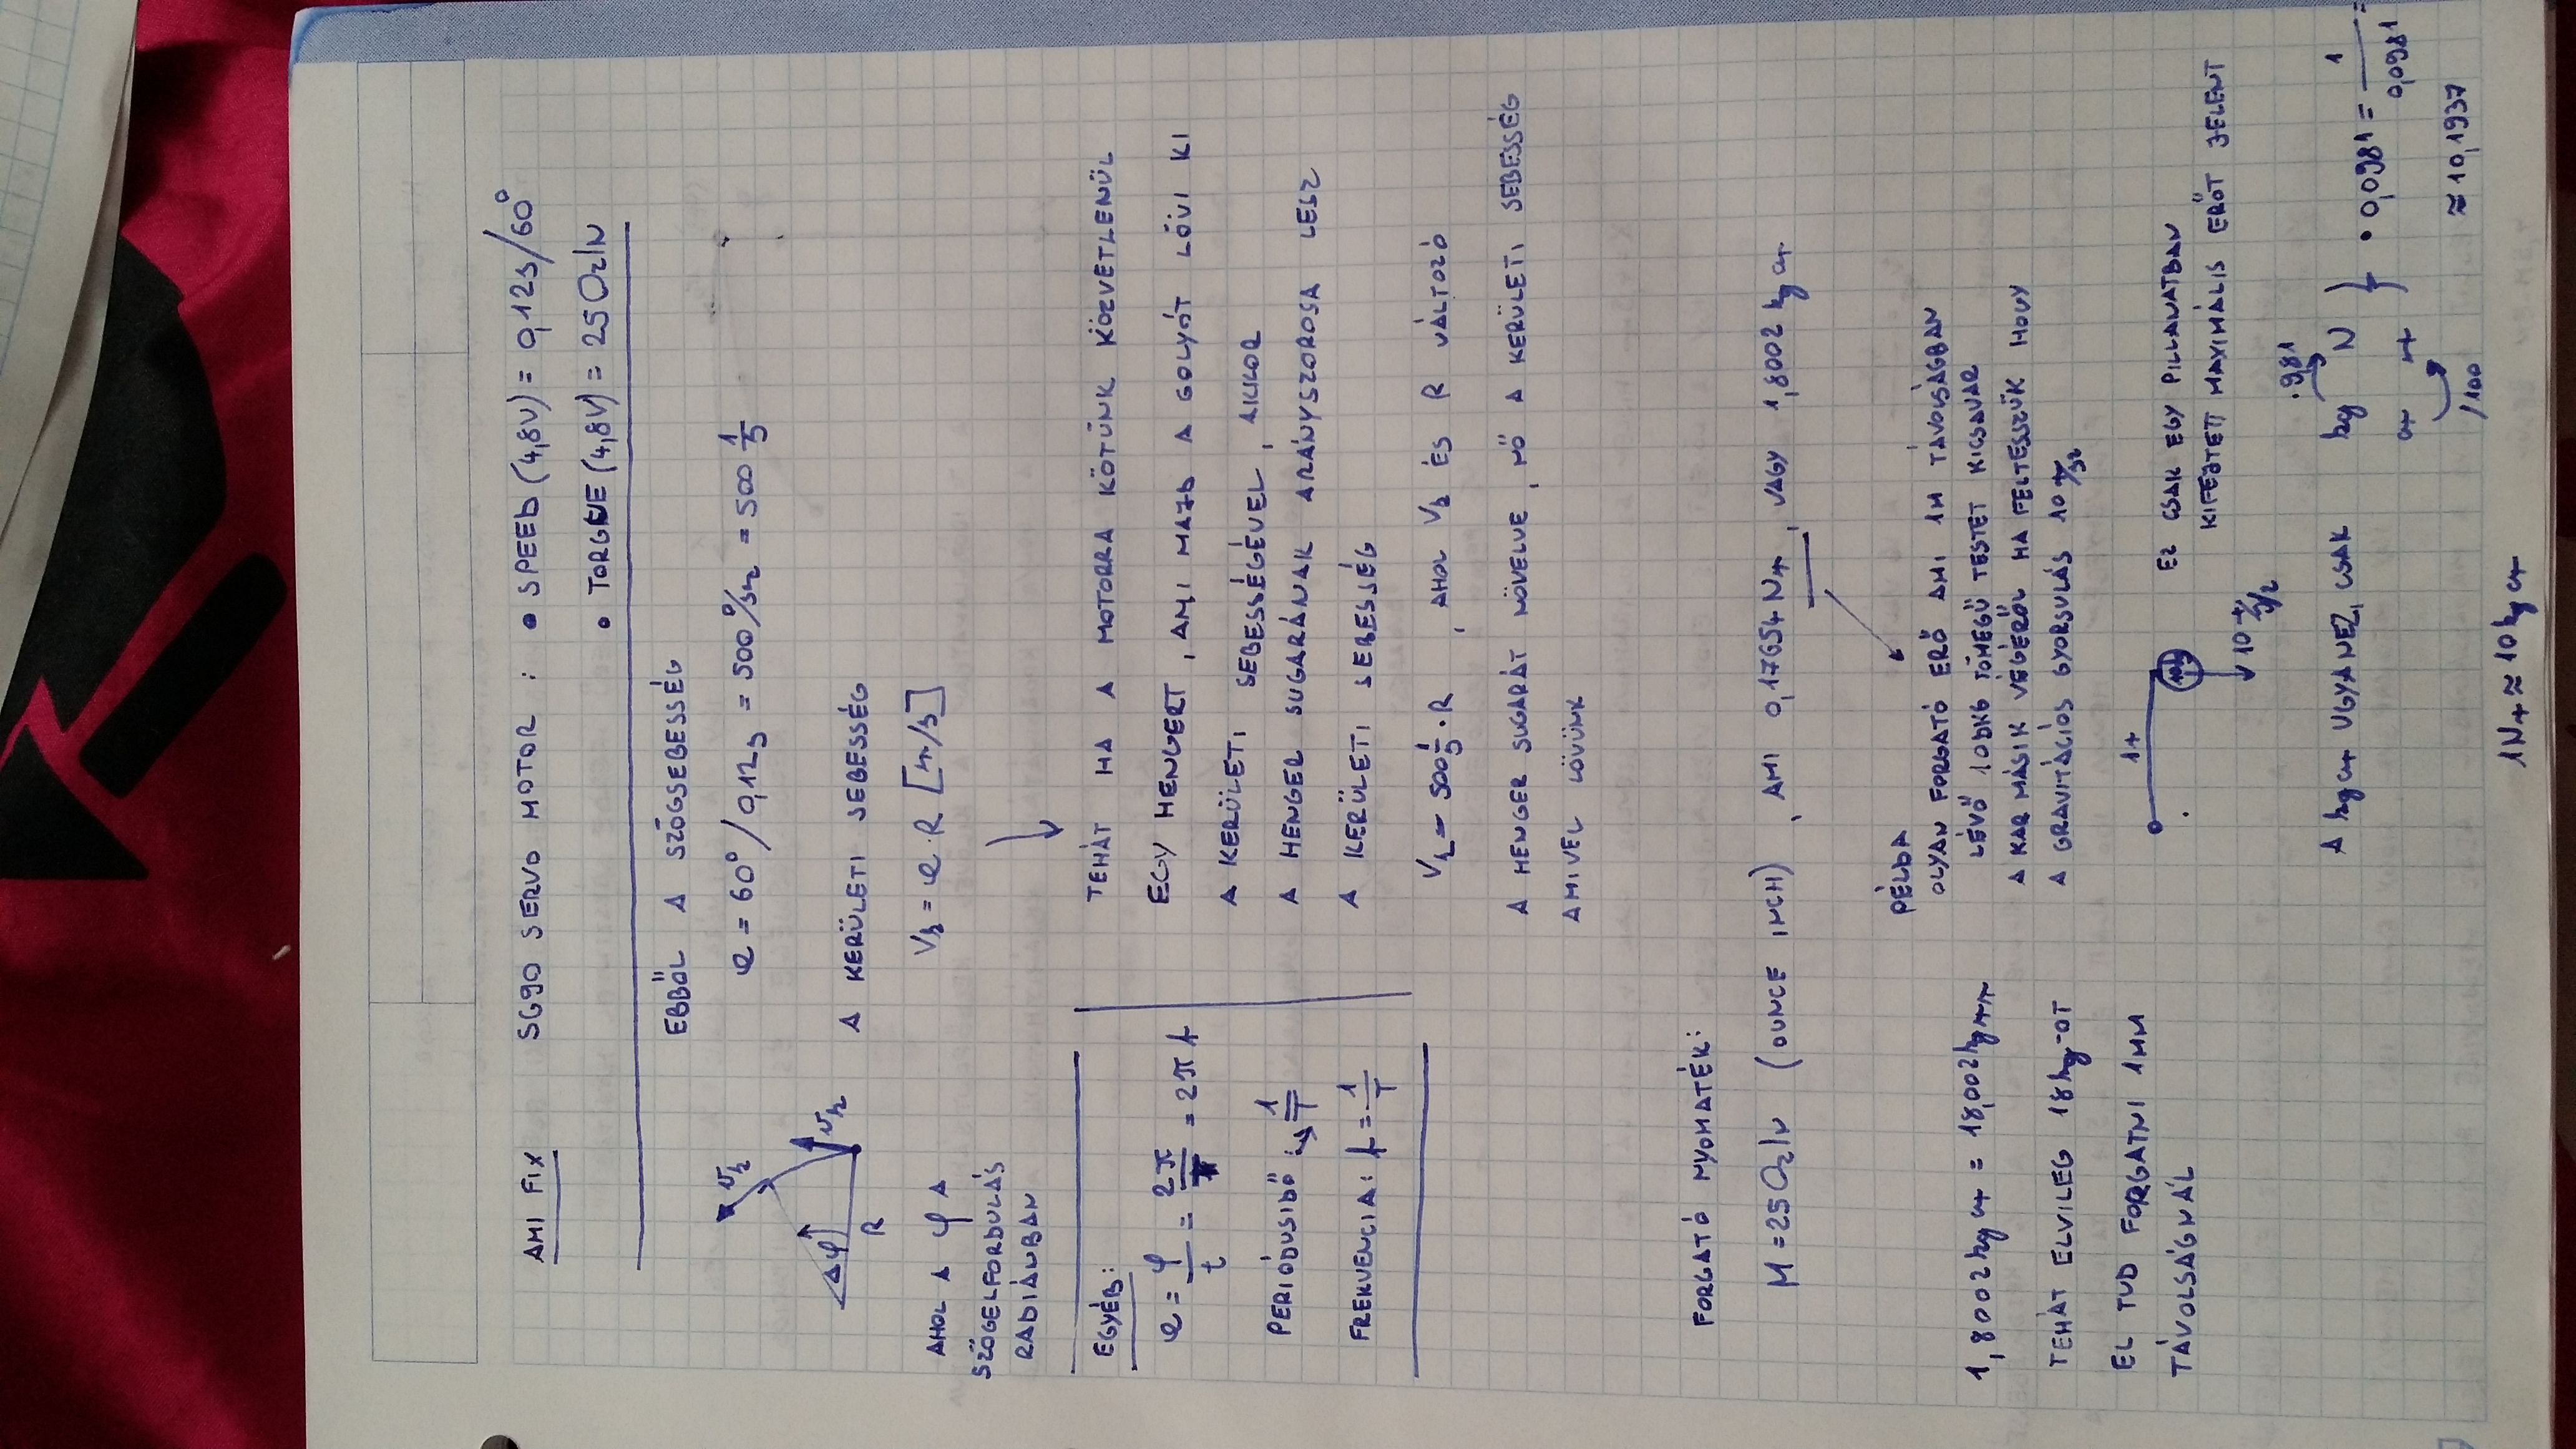 AMI FIX
SG90 SERVO MOTOR : • SPEED (4,8V) = 0,12s/60°
• TORGUE (4,8V) = 25 Oz/N
EBBŐL A SZÖGSEBESSÉG
= 60° / 0,12s = 500 °/s = 500 1/s
vk
Δφ
vk
R
A KERÜLETI SEBESSÉG
Vk = · R [m/s]
AHOL A φ A
SZÖGELFORDULÁS
RADIÁNBAN
TEHÁT HA A MOTORRA KÖTÜNK KÖZVETLENÜL
EGY HENGERT, AMI MAJD A GOLYÓT LÖVI KI
A KERÜLETI SEBESSÉGÉVEL, AKKOR
A HENGER SUGARÁNAK ARÁNYSZOROSA LESZ
A KERÜLETI SEBESSÉG
Vk = 500 1/s · R , AHOL Vk ÉS R VÁLTOZÓ
A HENGER SUGARÁT NÖVELVE, NŐ A KERÜLETI SEBESSÉG
AMIVEL LÖVÜNK
EGYÉB:
= φ/t = 2π/T = 2π f
PERIÓDUSIDŐ : 1/T
FREKVENCIA: f = 1/T
FORGATÓ NYOMATÉK:
M = 25 Oz/N (OUNCE INCH) , AMI 0,17654 Nm , VAGY 1,8002 kg cm
PÉLDA
OLYAN FORGATÓ ERŐ AMI 1M TÁVOLSÁGBAN
LÉVŐ 10DKG TÖMEGŰ TESTET KICSAVAR
A KAR MÁSIK VÉGÉRŐL HA FELTESSZÜK HOGY
A GRAVITÁCIÓS GYORSULÁS 10 m/s2
1,8002 kg cm = 18,002 kg mm
TEHÁT ELVILEG 18 kg-OT
EL TUD FORGATNI 1MM
TÁVOLSÁGNÁL
1m
10 m/s2
EZ CSAK EGY PILLANATBAN
KIFEJTETT MAXIMÁLIS ERŐT JELENT
A kg cm UGYANEZ, CSAK
· 9,81
kg N
cm m
/100
· 0,0981 = 1/0,0981 =
≈ 10,1937
1Nm ≈ 10 kg cm